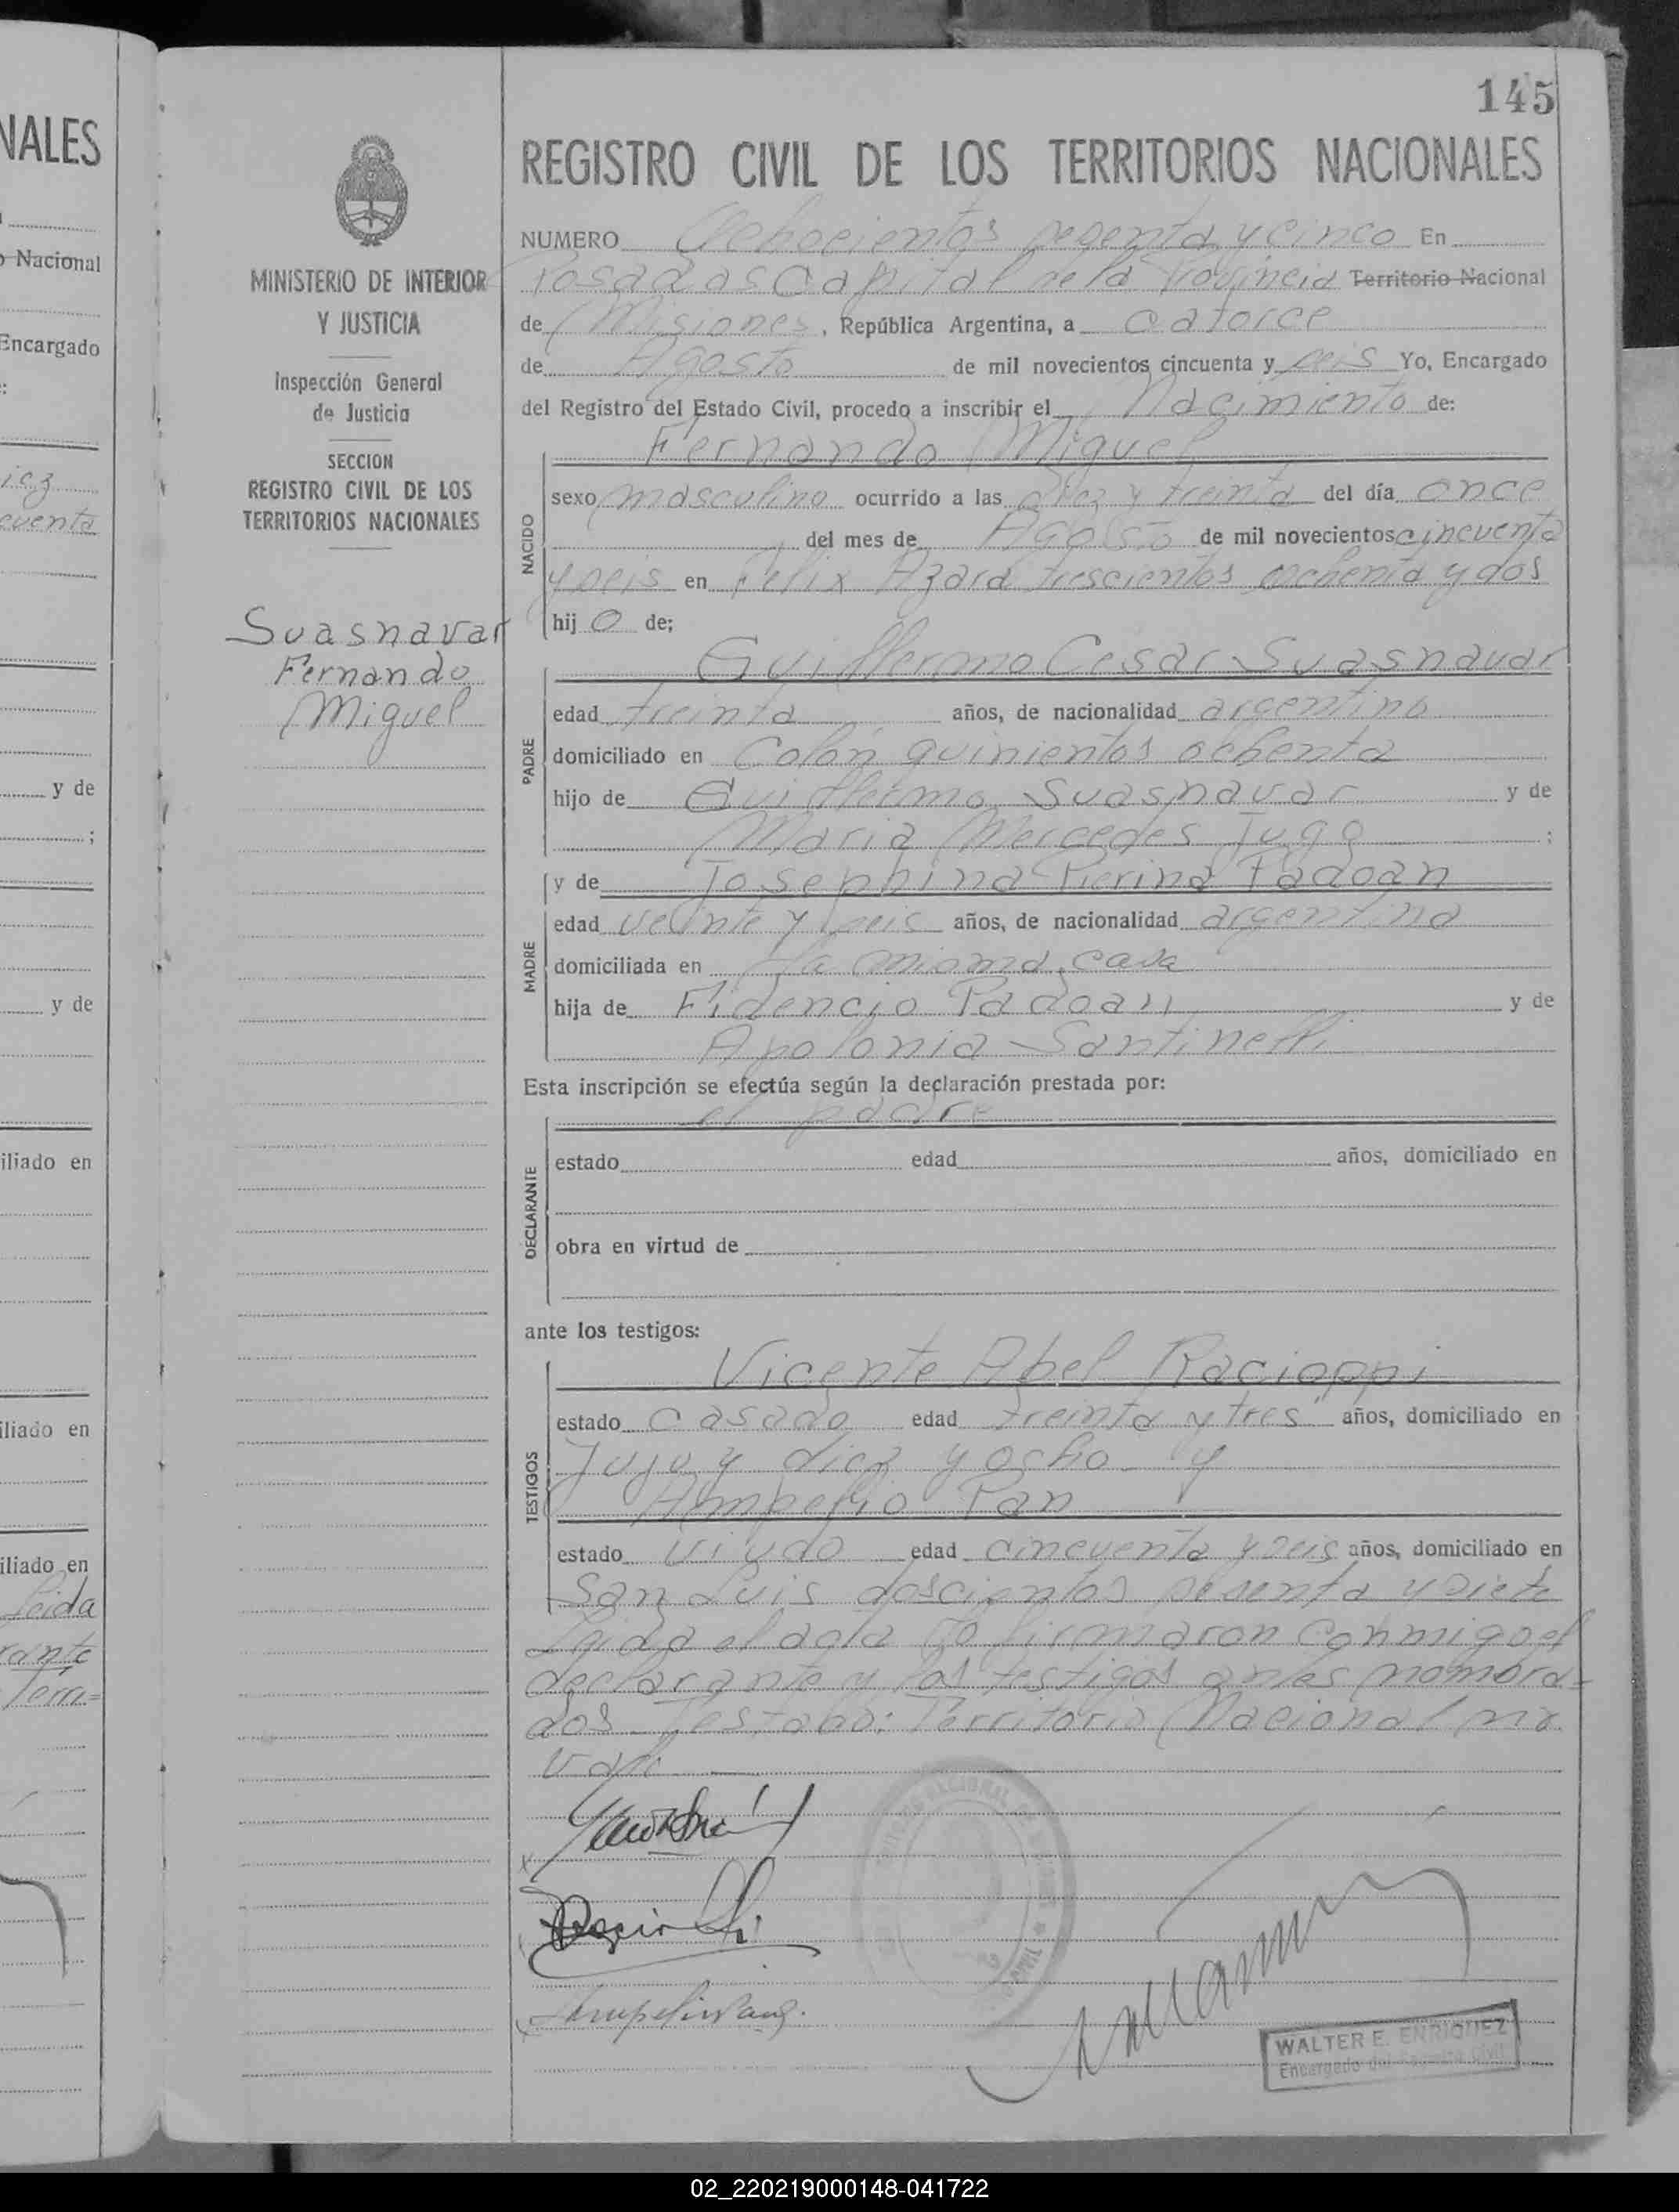 145
NALES
Nacional
Encargado
y de
;
y de
iliado en
iliado en
iliado en
leida
MINISTERIO DE INTERIOR
Y JUSTICIA
Inspección General
de Justicia
SECCION
REGISTRO CIVIL DE LOS
TERRITORIOS NACIONALES
Suasnavar
Fernando
Miguel
REGISTRO CIVIL DE LOS TERRITORIOS NACIONALES
NUMERO Ochocientos sesenta y cinco En
Posadas Capital de la Provincia Territorio Nacional
de Misiones, República Argentina, a catorce
de Agosto de mil novecientos cincuenta y seis Yo, Encargado
del Registro del Estado Civil, procedo a inscribir el Nacimiento de:
Fernando Miguel
NACIDO
sexo masculino ocurrido a las diez y treinta del día once
del mes de Agosto de mil novecientos cincuenta
y seis en Felix Azara trescientos ochenta y dos
hijo de;
Guillermo Cesar Suasnavar
PADRE
edad treinta años, de nacionalidad argentino
domiciliado en Colón quinientos ochenta
hijo de Guillermo Suasnavar y de
Maria Mercedes ;
y de Josephina Pierina Padoan
MADRE
edad veinte y seis años, de nacionalidad argentina
domiciliada en la misma casa
hija de Fidencio Padoan y de
Apolonia Santinelli
Esta inscripción se efectúa según la declaración prestada por:
el padre
DECLARANTE
estado edad años, domiciliado en
obra en virtud de
ante los testigos:
Vicente Abel Racioppi
TESTIGOS
estado casado edad treinta y tres años, domiciliado en
Jujuy diez y ocho y
Ampelio Pan
estado viudo edad cincuenta y seis años, domiciliado en
San Luis doscientos sesenta y siete
Leida el acta la firmaron conmigo el
declarante y los testigos antes nombra=
dos. Testado: Territorio Nacional no
vale
WALTER E. ENRIQUEZ
Encargado del Registro Civil
02_220219000148-041722